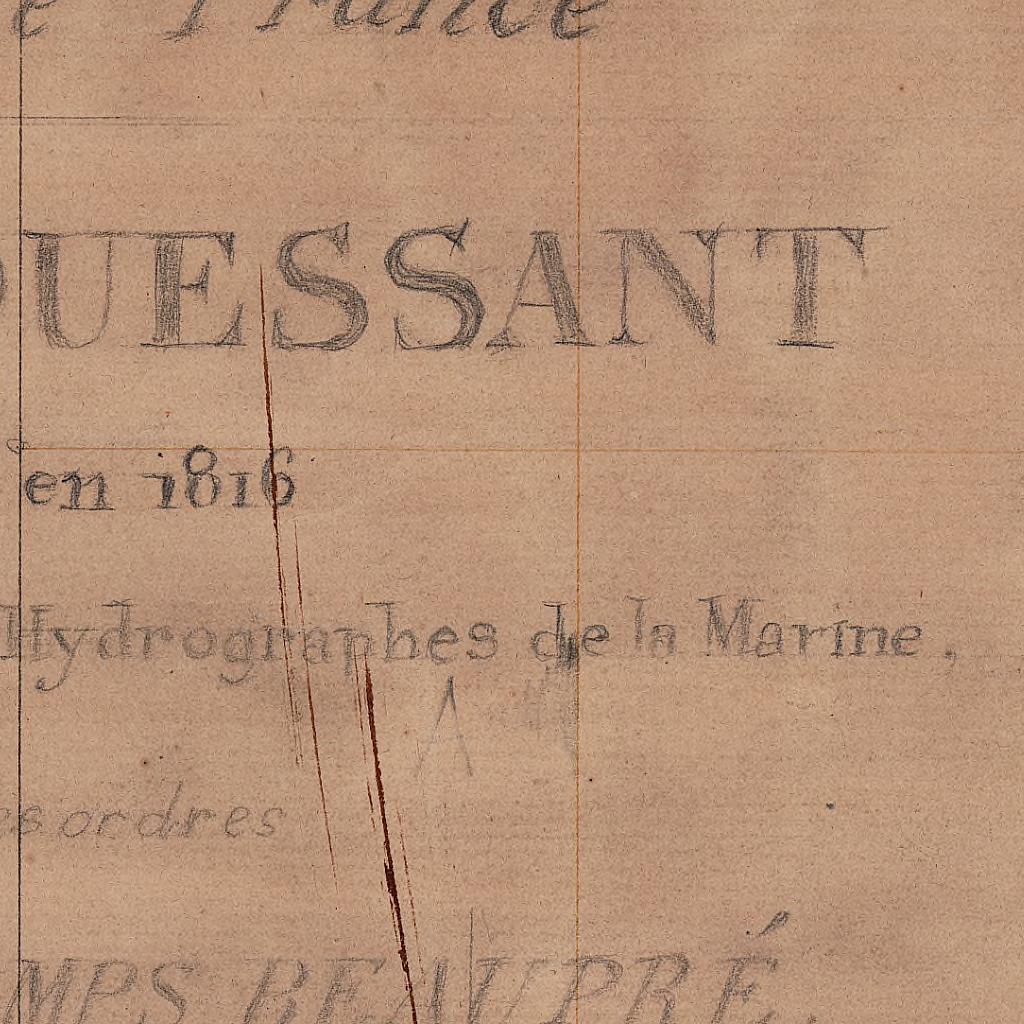 e France
OUESSANT
en 1816
Hydrographes de la Marine,
A
es ordres
MPS BEAUPRÉ,